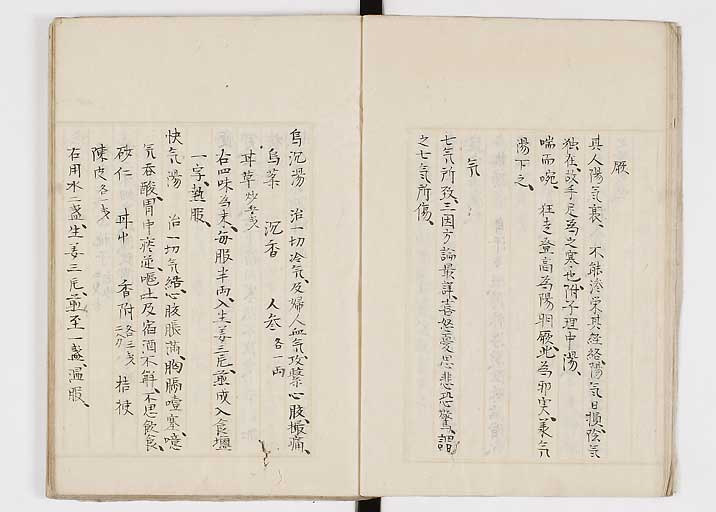 厥
其人陽氣衰、不能滲榮其經絡、陽氣日損、陰氣
独在、故手足為之寒也、附子理中湯、
喘而啘、狂走登高為陽明厥、此為邪実、承気
湯下之、
気
七気所致、三因方論最詳、喜怒憂思悲恐驚、謂
之七気所傷、
烏沉湯　治一切冷気、及婦人血気攻築、心腹撮痛、
烏薬　沉香　人参各一両
甘草炒
右四味為末、毎服半両、入生姜三片、煎成入食塩
一字、熱服、
快気湯　治一切気結、心腹脹満、胸膈噎塞、噫
気吞酸、胃中痰逆、嘔吐及宿酒不解、不思飲食、
砂仁　甘中　香附　桔梗
陳皮各一戋
右用水二盞、生姜三片、煎至一盞、温服、